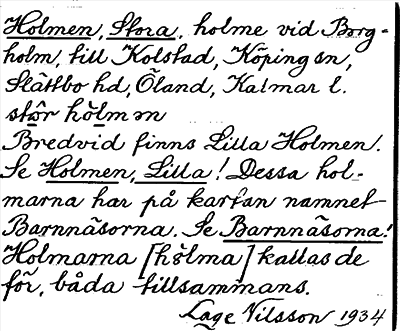 Holmen, Stora, holme vid Borg-
holm, till Kolstad, Köping sn,
Slättbo hd, Öland, Kalmar l.
stōr hòlmən
Bredvid finns Lilla Holmen.
Se Holmen, Lilla! Dessa hol-
marna har på kartan namnet
Barnnäsorna. Se Barnnäsorna!
Holmarna [hòlma] kallas de
för, båda tillsammans.
Lage Nilsson 1934